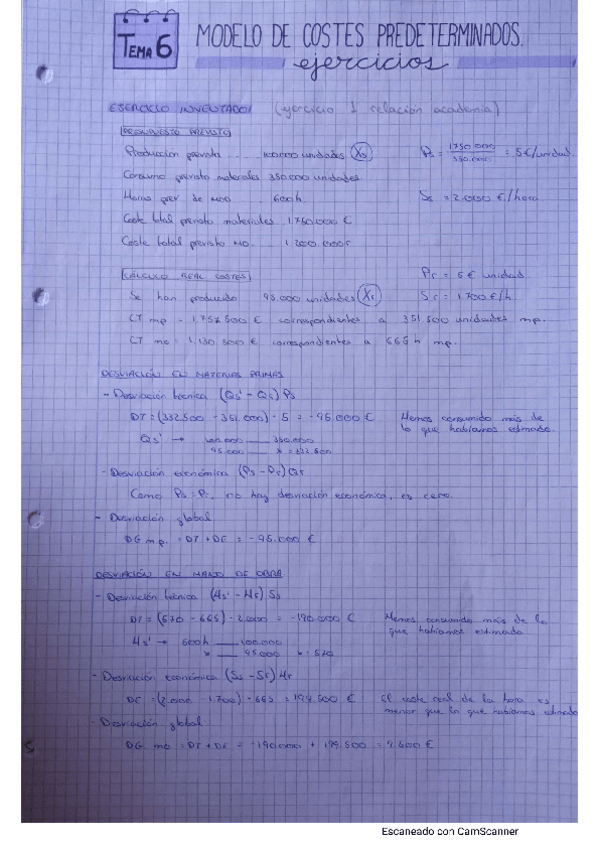 TEMA 6
MODELO DE COSTES PREDETERMINADOS.
ejercicios
EJERCICIO INVENTADO! (ejercicio 1 relación academia)
PRESUPUESTO PREVISTO
Producción prevista ... 100.000 unidades (Xs) Ps = 1750.000 / 350.000 = 5€/unidad.
Consumo previsto materiales 350.000 unidades
Horas prev. de MOD 600h Ss = 2.000 €/hora
Coste total previsto materiales 1.750.000 €
Coste total previsto MO. 1.200.000€
CÁLCULO REAL COSTES Pr = 5€ unidad
Se han producido 95.000 unidades (Xr) Sr = 1.700€/h
CT mp - 1.757.500 € correspondientes a 351.500 unidades mp.
CT mo = 1.130.500 € correspondientes a 665h mp.
DESVIACIÓN EN MATERIAS PRIMAS
- Desviación técnica (Qs' - Qr) Ps
DT = (332.500 - 351.000) · 5 = -95.000 € Hemos consumido más de
lo que habíamos estimado.
Qs' → 100.000 350.000
95.000 x = 332.500
- Desviación económica (Ps - Pr) Qr
Como Ps = Pr, no hay desviación económica, es cero.
- Desviación global
DG mp. = DT + DE = -95.000 €
DESVIACIÓN EN MANO DE OBRA
- Desviación técnica (Hs' - Hr) Ss
DT = (570 - 665) · 2.000 = -190.000 € Hemos consumido más de lo
que habíamos estimado
Hs' → 600h 100.000
x 95.000 x = 570
- Desviación económica (Ss - Sr) Hr
DE = (2.000 - 1.700) · 665 = 199.500 € El coste real de la hora es
menor que lo que habíamos estimado
- Desviación global
DG mo = DT + DE = -190.000 + 199.500 = 9.500 €
Escaneado con CamScanner